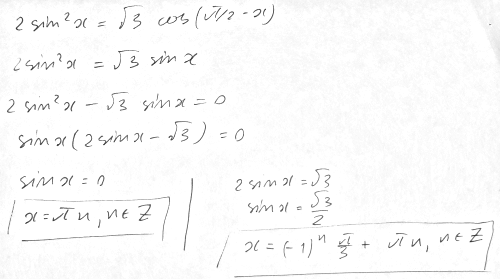 2 sin²x = √3 cos(π/2 - x)
2sin²x = √3 sin x
2 sin²x - √3 sin x = 0
sin x (2 sin x - √3) = 0
sin x = 0
x = πn, n ∈ Z
2 sin x = √3
sin x = √3/2
x = (-1)ⁿ π/3 + πn, n ∈ Z